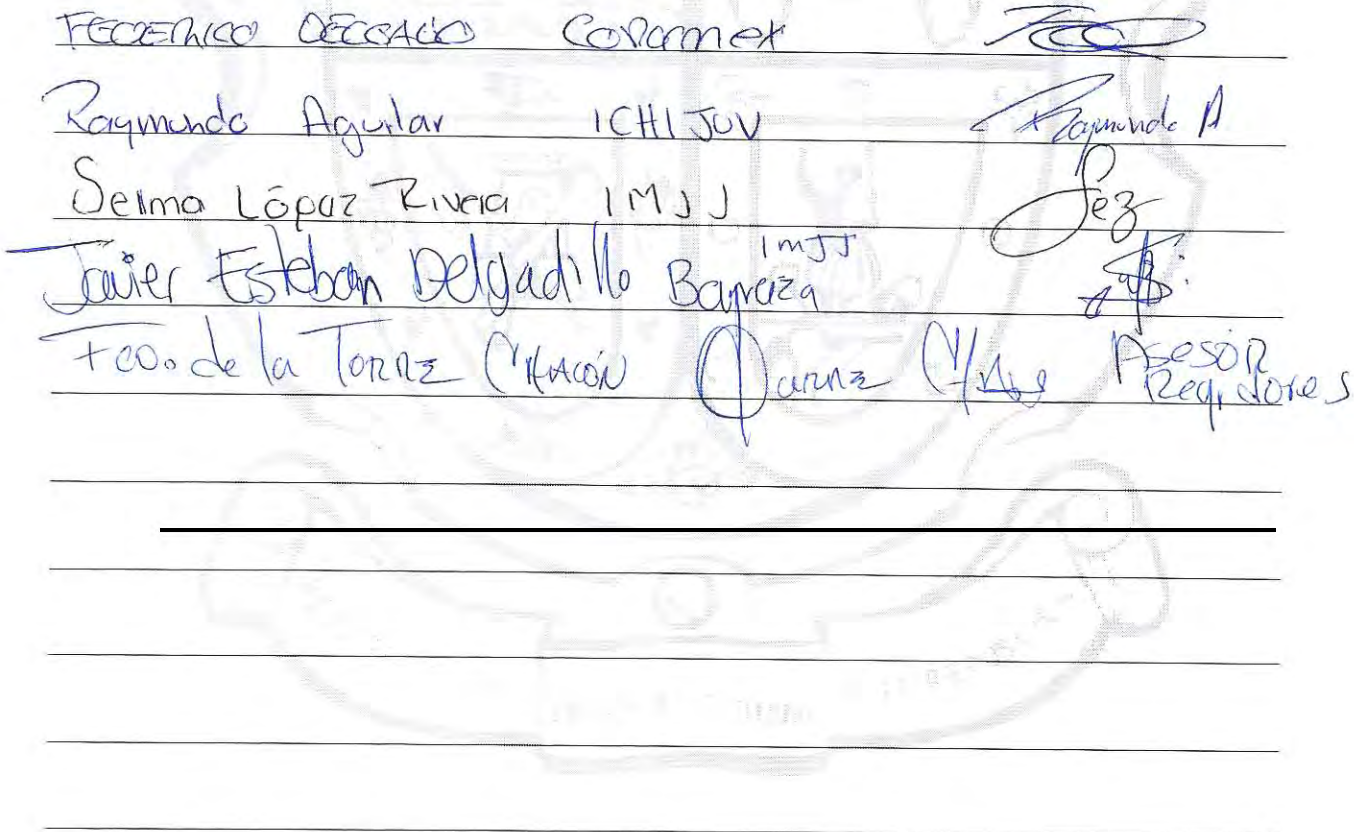 FEDERICO DELGADO Coparmex
Raymundo Aguilar ICHIJUV Raymundo A
Selma López Rivera IMJJ
Javier Esteban Delgadillo Barraza IMJJ
Fco. de la Torre Chacón Asesor Regidores